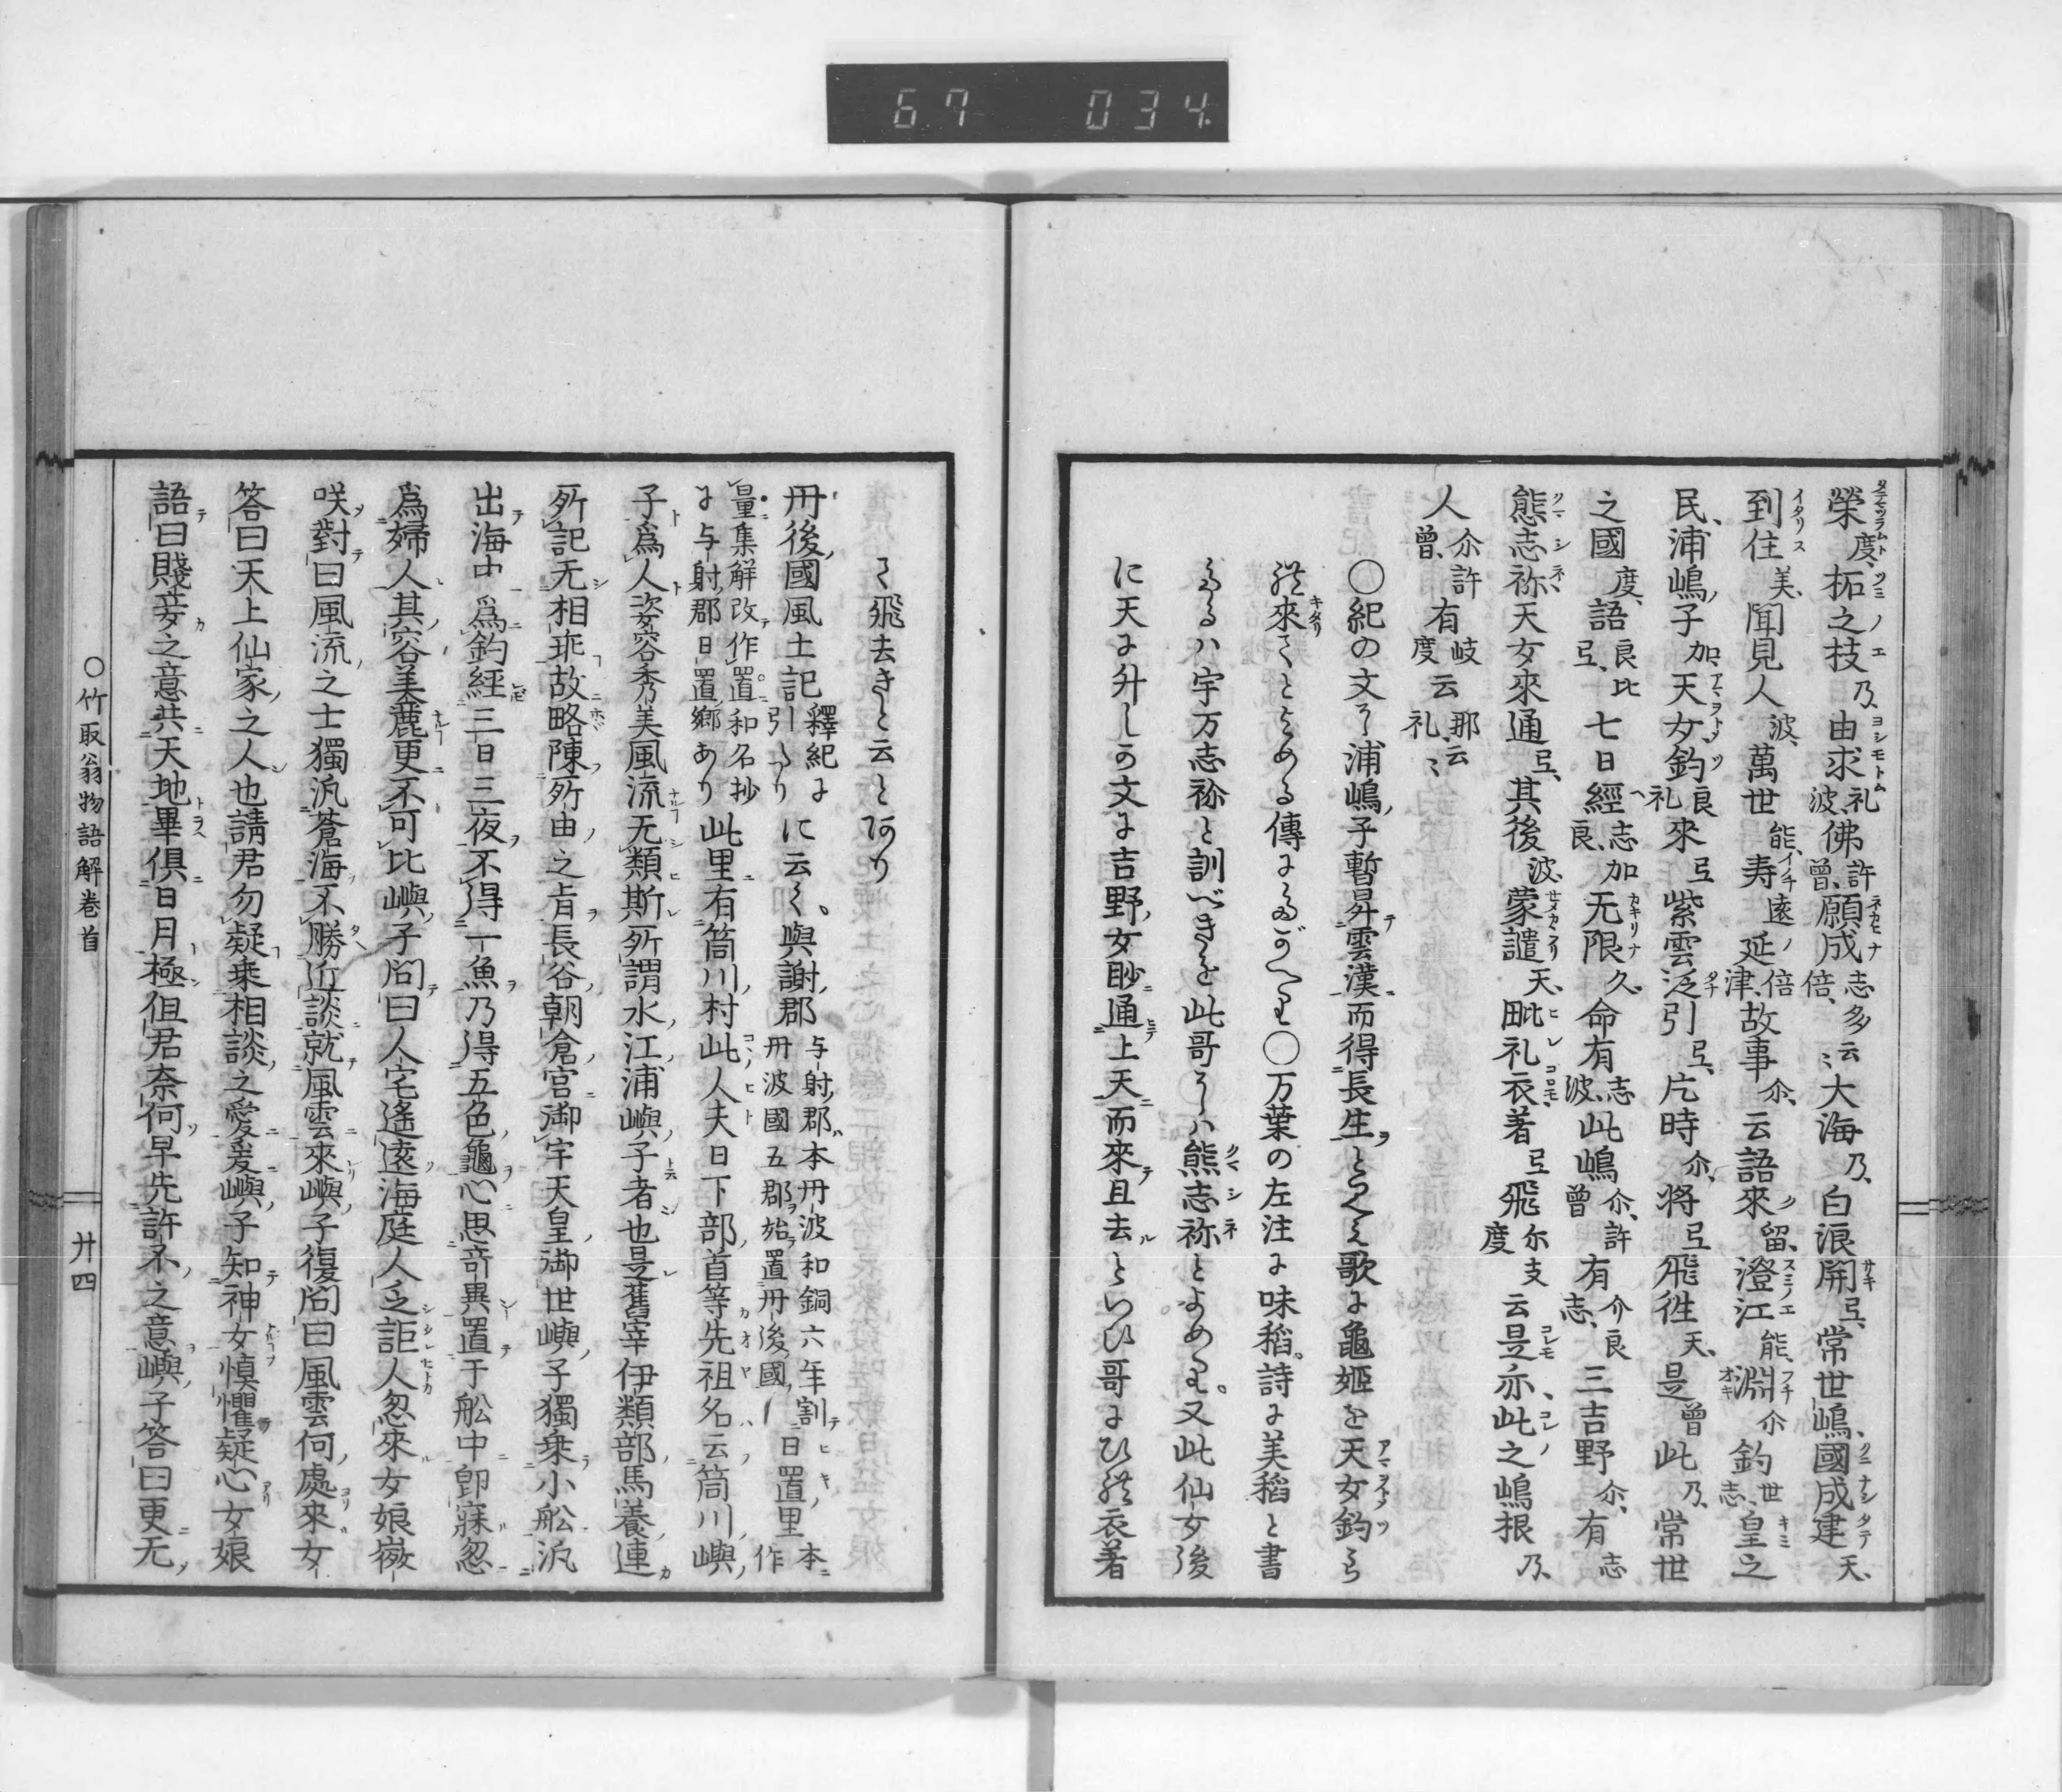 67 034
榮度拓之枝乃由求礼波佛許曾願成志多倍云〻大海乃白浪開弖常世嶋國成建天
到住美聞見人波萬世能寿遠延倍津故事尒云語來留澄江能淵尒釣世志皇之
民浦嶋子加天女釣良礼來弖紫雲泛引弖片時尒将弖飛徃天是曾此乃常世
之國度語良比弖七日經志加良无限久命有志波此嶋尒許曾有介良志三吉野尒有志
熊志祢天女來通弖其後波蒙譴天毗礼衣著弖飛尓支度云是亦此之嶋根乃
人尒許曾有岐度云那礼云〻
○紀の文に浦嶋子暫昇雲漢而得長生とくみ歌に龜姬を天女釣ら
礼來てとよめる傳によるべくや○万葉の左注に味稻詩に美稻と書
たるハ宇万志祢と訓べきを此哥にハ熊志祢とよめり。又此仙女後
に天に升しの文に吉野女眇通上天而來且去といひ哥にひ礼衣著
て飛去きと云とあり
丹後國風土記釋紀に引りに云く。與謝郡与射郡本丹波和銅六年割丹波國五郡始置丹後國日置里本作
量集解改作置和名抄に与射郡日置郷あり此里有筒川村此人夫日下部首等先祖名云筒川嶼
子爲人姿容秀美風流无類斯所謂水江浦嶼子者也是舊宰伊類部馬養連
所記无相乖故略陳所由之旨長谷朝倉宮御宇天皇御世嶼子獨乗小舩汎
出海中爲釣經三日三夜不得一魚乃得五色龜心思奇異置于舩中卽寐忽
爲婦人其容美麗更不可比嶼子問曰人宅遙遠海庭人乏詎人忽來女娘微
咲對曰風流之士獨汎蒼海不勝近談就風雲來嶼子復問曰風雲何處來女
答曰天上仙家之人也請君勿疑乗相談之愛爰嶼子知神女愼懼疑心女娘
語曰賤妾之意共天地畢俱日月極但君奈何早先許不之意嶼子答曰更无
○竹取翁物語解卷首
廾四